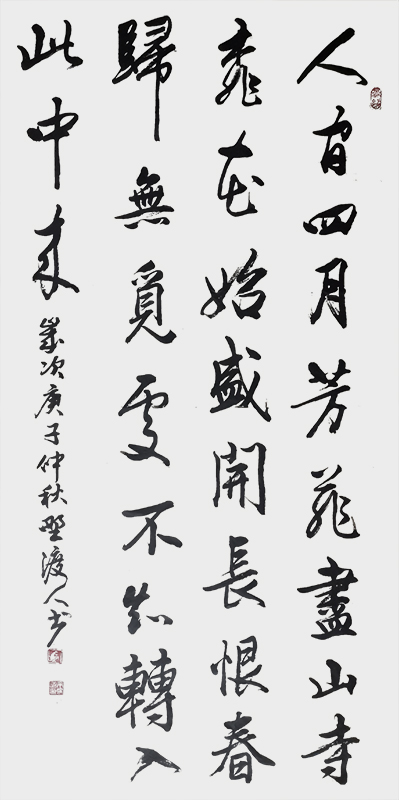 人間四月芳菲盡山寺
桃花始盛開長恨春
歸無覓處不知轉入
此中來
歲次庚子仲秋野渡人書